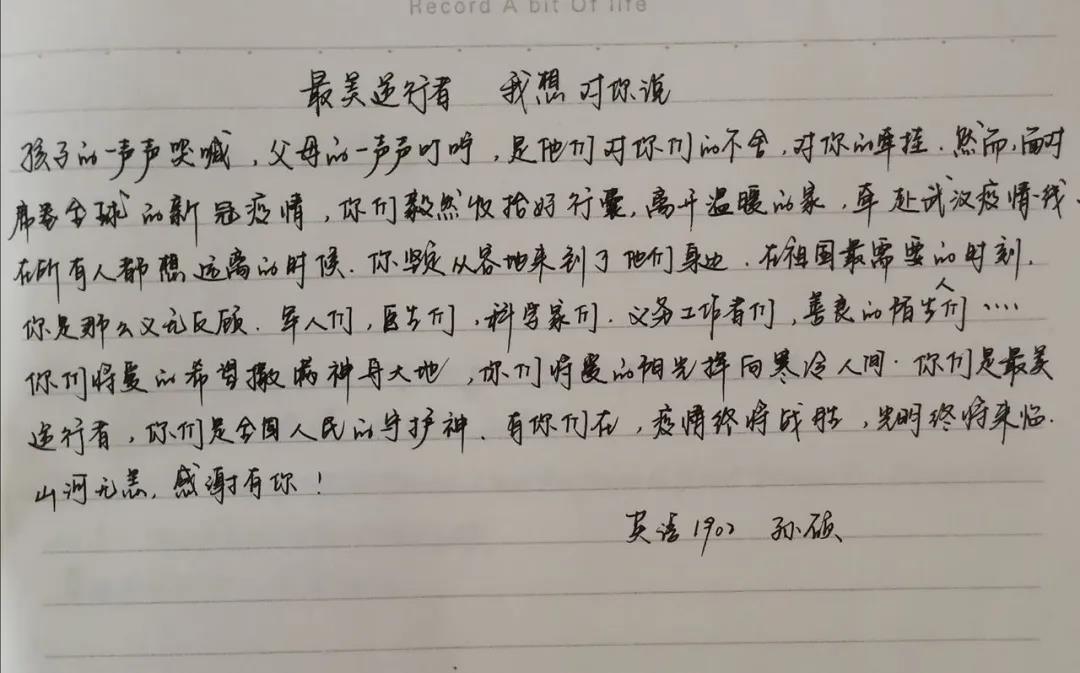 Record A bit Of life
最美逆行者 我想对你说
孩子的一声声哭喊，父母的一声声叮咛，是他们对你们的不舍，对你的牵挂．然而，面对
席卷全球的新冠疫情，你们毅然收拾好行囊，离开温暖的家，奔赴武汉疫情一线．
在所有人都想远离的时候．你坚定从容地来到了他们身边．在祖国最需要的时刻．
你是那么义无反顾．军人们，医生们，科学家们．义务工作者们，善良的陌生人们····
你们将爱的希望撒满神舟大地，你们将爱的阳光挥向寒冷人间．你们是最美
逆行者，你们是全国人民的守护神．有你们在，疫情终将战胜，光明终将来临．
山河无恙，感谢有你！
英语1902 孙硕